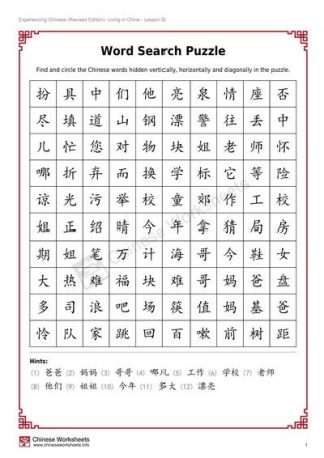 Experiencing Chinese (Revised Edition), Living in China - Lesson 8
Word Search Puzzle
Find and circle the Chinese words hidden vertically, horizontally and diagonally in the puzzle.
扮 具 中 们 他 亮 泉 情 座 否
尽 填 道 山 钢 漂 警 往 丢 中
儿 忙 您 对 物 块 姐 老 师 怀
哪 折 弃 而 换 学 标 它 等 险
谅 光 污 举 校 童 郊 作 工 校
姐 正 绍 晴 今 年 拿 猜 局 房
期 姐 笔 万 计 海 哥 今 鞋 女
大 热 难 福 块 难 哥 妈 爸 盘
多 司 浪 吧 场 筷 值 妈 基 爸
怜 队 家 跳 回 百 嗽 前 树 距
Chinese Worksheets
Hints:
(1) 爸爸 (2) 妈妈 (3) 哥哥 (4) 哪儿 (5) 工作 (6) 学校 (7) 老师
(8) 他们 (9) 姐姐 (10) 今年 (11) 多大 (12) 漂亮
Chinese Worksheets
www.chineseworksheets.info
1